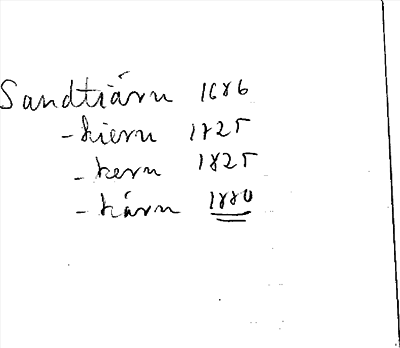 Sandtiárn 1686
-kiern 1825
-kern 1825
-kárn 1880